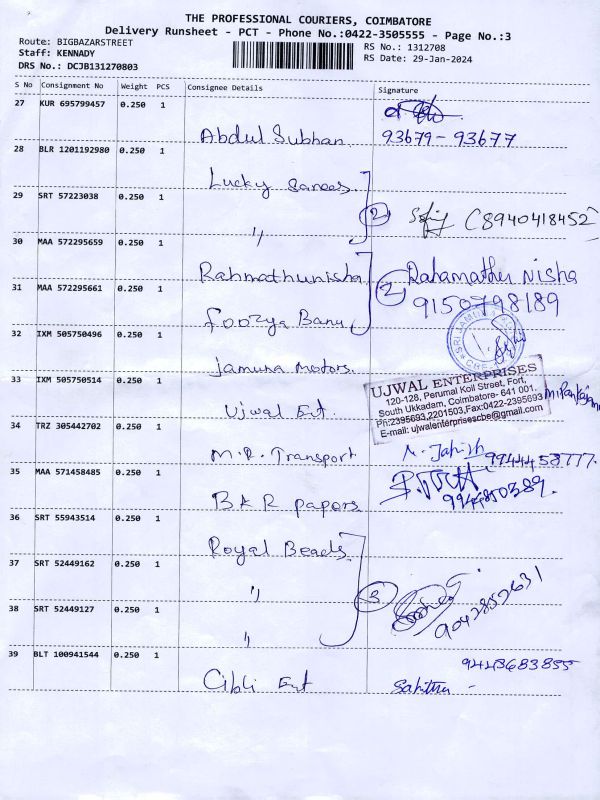 THE PROFESSIONAL COURIERS, COIMBATORE
Delivery Runsheet - PCT - Phone No.:0422-3505555 - Page No.:3
Route: BIGBAZARSTREET
Staff: KENNADY
DRS No.: DCJB131270803
RS No.: 1312708
RS Date: 29-Jan-2024
S No Consignment No Weight PCS Consignee Details Signature
27 KUR 695799457 0.250 1
Abdul Subhan 93679-93677
28 BLR 1201192980 0.250 1
Lucky Sarees
29 SRT 57223038 0.250 1
" 2 (8940418452)
30 MAA 572295659 0.250 1
Rahmathunisha 2 Rahamathu Nisha
31 MAA 572295661 0.250 1
9150798189
Foozya Banu
32 IXM 505750496 0.250 1
Jamuna Motors.
33 IXM 505750514 0.250 1
UJWAL ENTERPRISES
120-128, Perumal Koil Street, Fort,
South Ukkadam, Coimbatore- 641 001.
Ph:2395693,2201503,Fax:0422-2395693
E-mail: ujwalenterprisescbe@gmail.com
Ujwal Ent
34 TRZ 305442702 0.250 1
M.R. Transport 9944453777.
35 MAA 571458485 0.250 1
B & R papers
36 SRT 55943514 0.250 1
Royal Beads
37 SRT 52449162 0.250 1
" 3 9042852631
38 SRT 52449127 0.250 1
"
39 BLT 100941544 0.250 1
9443683855
Cibli Ent